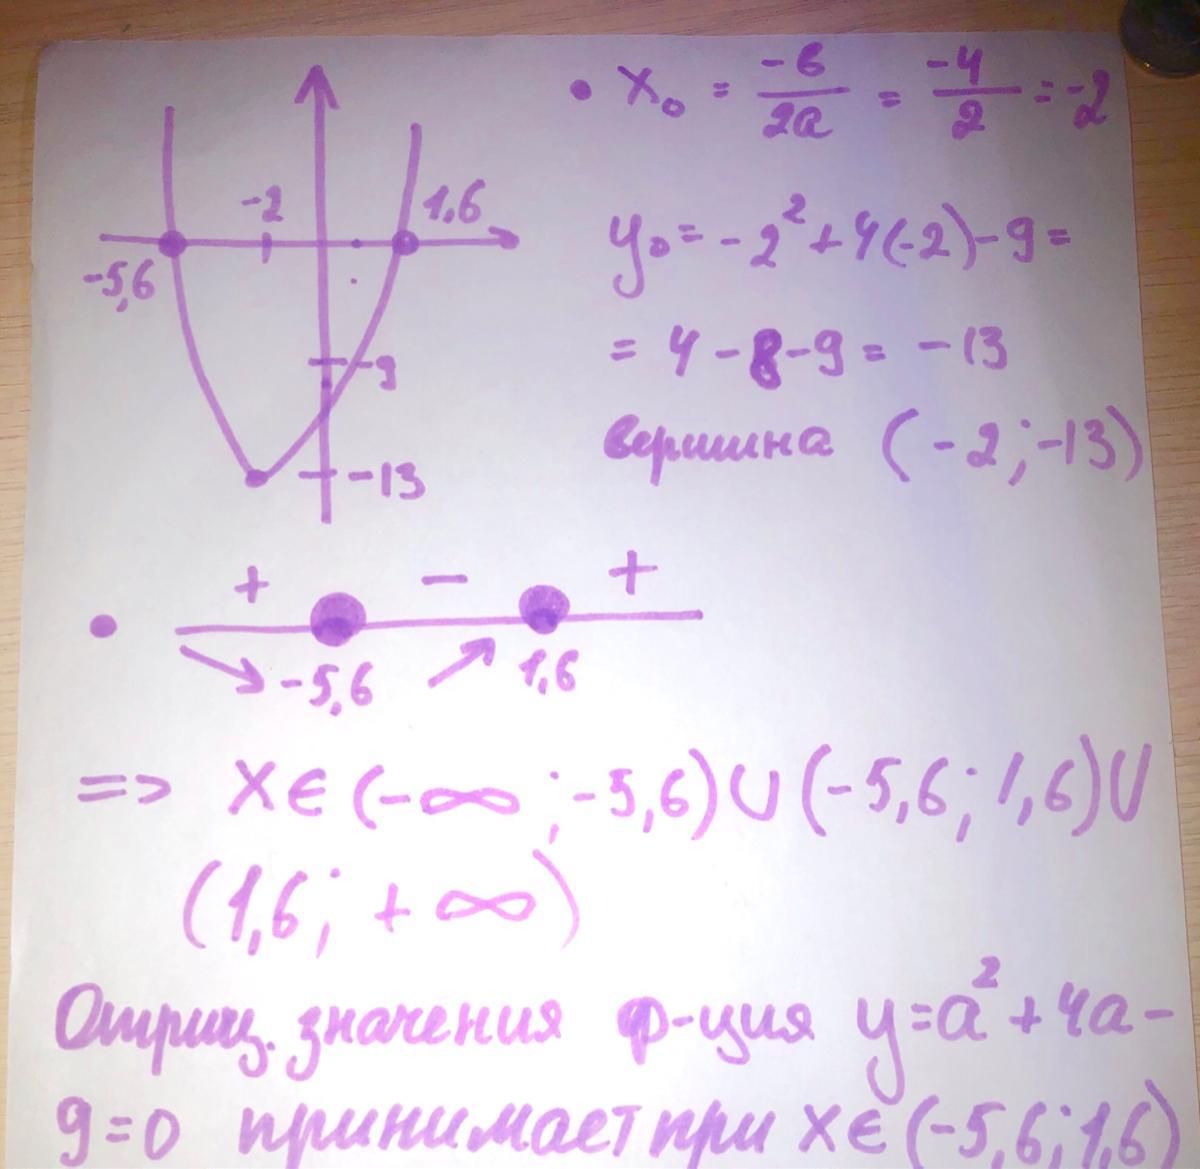 • x₀ = -в/2a = -4/2 = -2
-2 1,6
-5,6
y₀ = -2² + 4(-2) - 9 =
= 4 - 8 - 9 = -13
-9
вершина (-2; -13)
-13
+ - +
• -5,6 1,6
=> x ∈ (-∞; -5,6) ∪ (-5,6; 1,6) ∪
(1,6; +∞)
Отриц. значения ф-ция y = a² + 4a -
9 = 0 принимает при x ∈ (-5,6; 1,6)